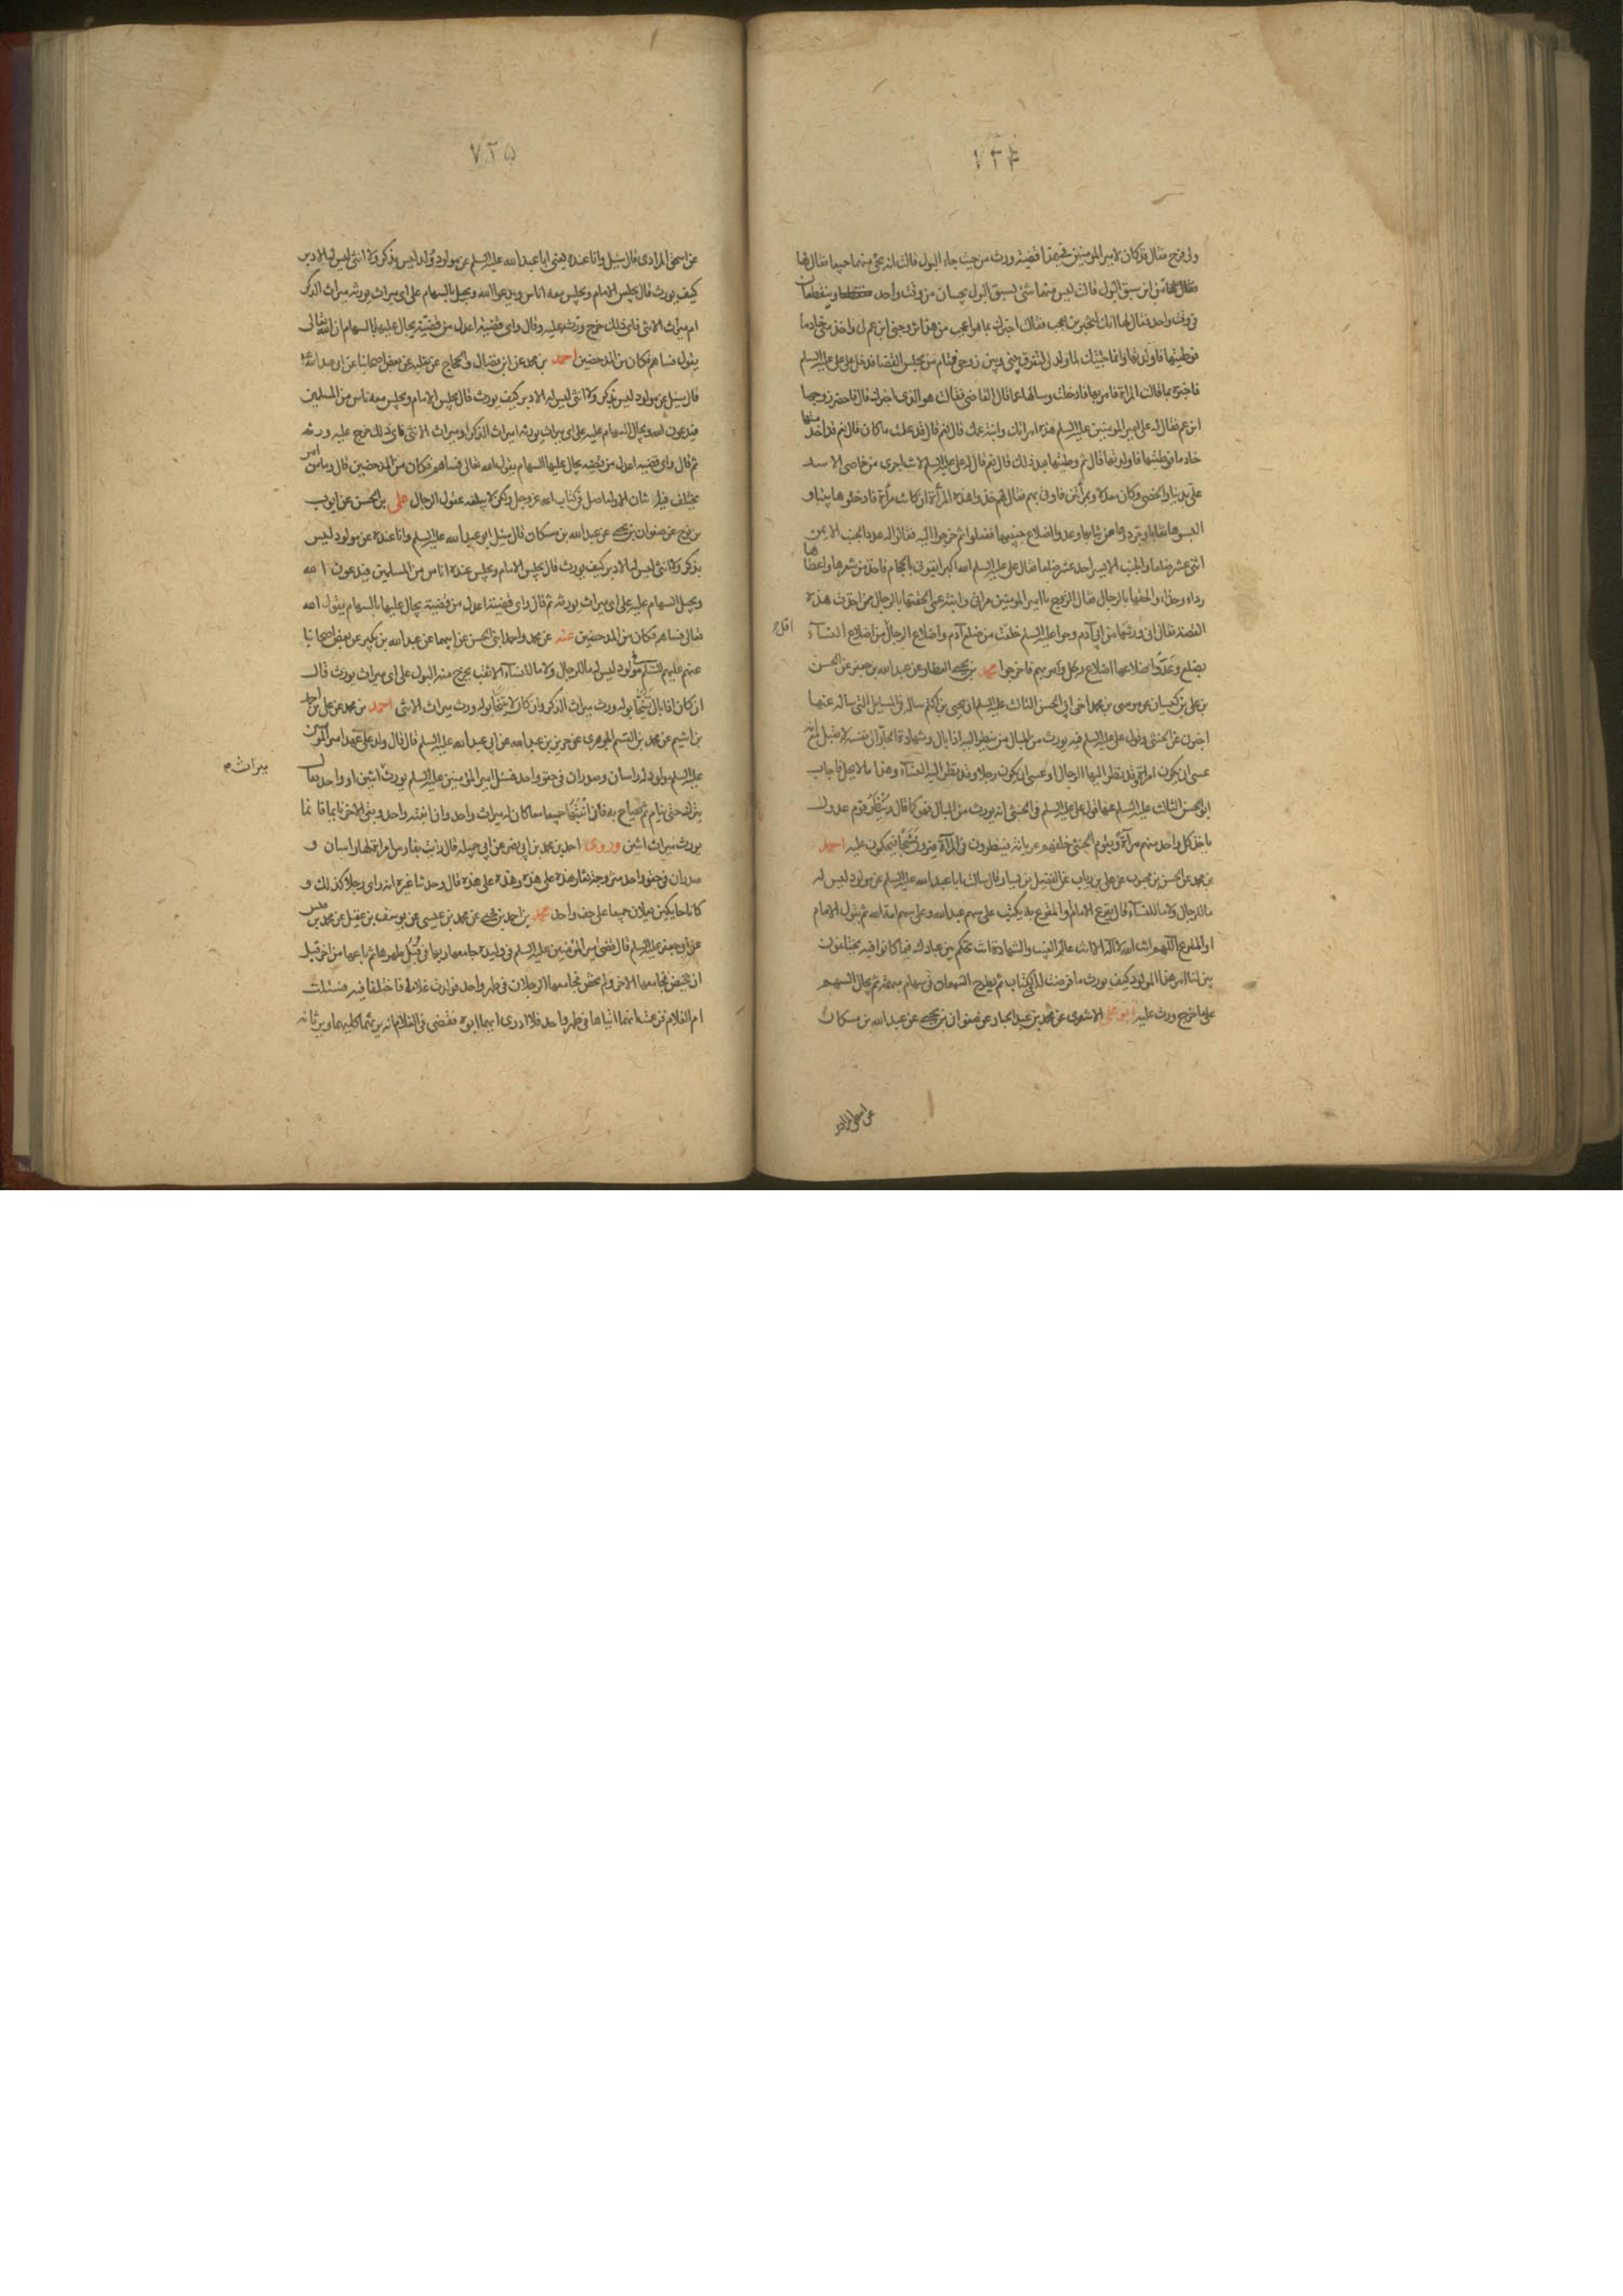 ٧٢٤
ولي فرج فقال قد كان لامير المومنين في هذا قضية ورث من حيث جاء البول قالت انه يجئ منهما جميعا فقال لها
من اين سبق البول قالت ليس منهما شئ يسبق البول يجيئان من وقت واحد وينقطعان
في وقت واحد فقال لها انك لتخبرين بعجب فقالت اخبرك بما هو اعجب من هذا تزوجني ابن عم لي واخذ مني خادما
فوطئتها فاولدتها وانما جئتك لما ولد لي لتفرق بيني وبين زوجي فقام من مجلس القضا فدخل على علي عليه السلم
فاخبره بما قالت المراة فامر بها فادخلت وسالها عما قال القاضي فقالت هو الذي اخبرك قال فاحضر زوجها
ابن عم فقال له علي امير المومنين عليه السلم هذه امراتك وابنة عمك قال نعم قال قد علمت ما كان قال نعم قد اخدمتها
خادما فوطئتها فاولدتها قال ثم وطئتها بعد ذلك قال نعم قال له علي عليه السلم لانت اجرى من خاصي الاسد
علي بدينار الخصي وكان معدلا وبمراتين فاوتي بهم فقال لهم خذوا هذه المرأة ان كانت مرأة فادخلوها بيتا و
البسوها نقابا وجردوها من ثيابها وعدوا اضلاع جنبيها ففعلوا ثم خرجوا اليه فقالوا له عدد الجنب الايمن
اثنى عشر ضلعا والجنب الايسر احد عشر ضلعا فقال علي عليه السلم الله اكبر ايتوني بالحجام فاخذ من شعرها واعطاها
رداء وحذاء والحقها بالرجال فقال الزوج يا امير المومنين مراتي وابنة عمي الحقتها بالرجال ممن اخذت هذه
القصة فقال اني ورثتها من ابي آدم وحوا عليه السلم خلقت من ضلع آدم واضلاع الرجال من اضلاع النساء
اقل
بضلع وعدوا اضلاعها اضلاع رجل وامر بهم فاخرجوا محمد بن يحيى العطار عن عبدالله بن جعفر عن الحسن
بن علي بن كيسان عن موسى بن محمد اخي ابي الحسن الثالث عليه السلم ان يحيى بن اكثم ساله في المسايل التي ساله عنها
اخبرني عن الخنثى وقول علي عليه السلم فيه يورث من المبال من ينظر اليه اذا بال وشهادة الجار الى نفسه لا تقبل مع انه
عسى ان يكون امراة وقد نظر اليها الرجال او عسى ان يكون رجلا وقد نظر اليه النساء وهذا ما لا يحل فاجاب
ابو الحسن الثالث عليه السلم عنها قول علي عليه السلم في الخنثى انه يورث من المبال فهو كما قال وينظر قوم عدول
ياخذ كل واحد منهم مرآة ويقوم الخنثى خلفهم عريانة فينظرون في المرآة فيرون شبحا فيحكمون عليه احمد
بن محمد عن الحسن بن محبوب عن علي بن رياب عن الفضيل بن يسار قال سالت ابا عبدالله عليه السلم عن مولود ليس له
ما للرجال ولا ما للنساء قال يقرع الامام او المقرع به يكتب على سهم عبدالله وعلى سهم امة الله ثم يقول الامام
او المقرع اللهم انت الله لا اله الا انت عالم الغيب والشهادة انت تحكم بين عبادك فيما كانوا فيه يختلفون
بين لنا امر هذا المولود كيف يورث ما فرضت له في الكتاب ثم يطرح السهمان في سهام مبهمة ثم يجال السهم
على ما خرج ورث عليه ابو علي الاشعري عن محمد بن عبد الجبار عن صفوان بن يحيى عن عبدالله بن مسكان
عن اسحق المرادى
٧٢٥
عن اسحق المرادى قال سئل وانا عنده يعني ابا عبدالله عليه السلم عن مولود ولد ليس بذكر ولا انثى ليس له الا دبر
كيف يورث قال يجلس الامام ويجلس معه اناس ويدعو الله ويجيل بالسهام على اي ميراث يورثه ميراث الذكر
ام ميراث الانثى فاي ذلك خرج ورثه عليه وقال واي قضية اعدل من قضية يجال عليها بالسهام ان الله تعالى
يقول فساهم فكان من المدحضين احمد بن محمد عن ابن فضال والحجاج عن ثعلبة عن بعض اصحابنا عن ابي عبدالله
قال سئل عن مولود ليس بذكر ولا انثى ليس له الا دبر كيف يورث قال يجلس الامام ويجلس معه ناس من المسلمين
فيدعون الله ويجال السهام عليه على اي ميراث يورثه اميراث الذكر او ميراث الانثى فاي ذلك خرج عليه ورثه
ثم قال واي قضية اعدل من قضية يجال عليها السهام يقول الله تعالى فساهم فكان من المدحضين قال وما من امر
يختلف فيه اثنان الا وله اصل في كتاب الله عز وجل ولكن لا يبلغه عقول الرجال علي بن الحسن عن ايوب
بن نوح عن صفوان بن يحيى عن عبدالله بن مسكان قال سئل ابو عبدالله عليه السلم وانا عنده عن مولود ليس
بذكر ولا انثى ليس له الا دبر كيف يورث قال يجلس الامام ويجلس عنده اناس من المسلمين فيدعون الله
ويجيل السهام عليه على اي ميراث يورثه ثم قال واي قضية اعدل من قضية يجال عليها بالسهام يقول الله
تعالى فساهم فكان من المدحضين عنه عن محمد واحمد ابني الحسن عن ابيهما عن عبدالله بن بكير عن بعض اصحابنا
عنهم عليهم السلم في مولود ليس له ما للرجال ولا ما للنساء الا ثقب يخرج منه البول على اي ميراث يورث قال
ان كان اذا بال يتنحى بوله ورث ميراث الذكر وان كان لا يتنحى بوله ورث ميراث الانثى احمد بن محمد عن علي بن احمد
بن اشيم عن محمد بن القسم الجوهري عن حريز بن عبدالله عن ابي عبدالله عليه السلم قال قال ولد على عهد امير المومنين
عليه السلم مولود له راسان وصدران في حقو واحد فسئل امير المؤمنين عليه السلم يورث اثنين او واحد فقال
ميراث م
يترك حتى ينام ثم يصاح به فان انتبها جميعا معا كان له ميراث واحد وان انتبه واحد وبقى الاخر نايما فانما
يورث ميراث اثنين وروى احمد بن محمد بن ابي نصر عن ابي جميلة قال رايت بفارس امراة لها راسان و
صدران في حقو واحد متزوجة تغار هذه على هذه وهذه على هذه قال وحدثنا غيره انه راى رجلا كذلك و
كانا حايكين يعملان جميعا على حف واحد محمد بن احمد بن يحيى عن محمد بن عيسى عن يوسف بن عقيل عن محمد بن قيس
عن ابي جعفر عليه السلم قال قضى امير المؤمنين عليه السلم في وليدة جامعها ربها في قبل طهرها ثم باعها من آخر قبل
ان تحيض فجامعها الاخر ولم تحض فجامعها الرجلان في طهر واحد فولدت غلاما فاختلفا فيه فسئلت
ام الغلام فزعمت انهما اتياها في طهر واحد فلا ادري ايهما ابوه فقضى في الغلام انه يرثهما كليهما ويرثانه